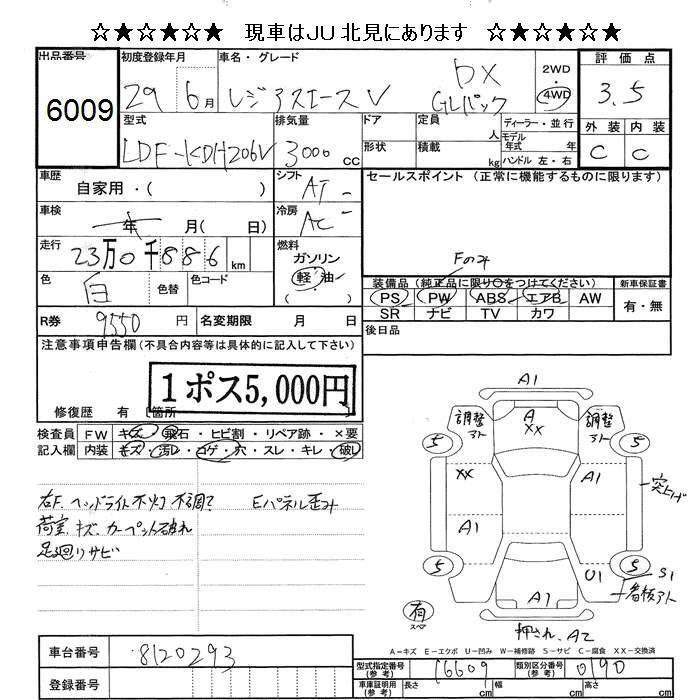 ☆★☆★☆★ 現車はJU北見にあります ☆★☆★☆★
出品番号 初度登録年月 車名・グレード 2WD・4WD 評価点
6009 29年 6月 レジアスエースV DX GLパック 3.5
型式 排気量 ドア 定員 人 ディーラー・並行 外装 内装
LDF-KDH206V 3000cc 形状 積載 kg モデル年式 年式 ハンドル 左・右 C C
車歴 自家用・( ) シフト AT セールスポイント (正常に機能するものに限ります)
車検 年 月( 日) 冷房 AC
走行 23万0千886km 燃料 ガソリン 軽油 ( )
Fのみ
色 白 色替 色コード 装備品(純正品に限り○をつけてください) 新車保証書
PS PW ABS エアB AW 有・無
SR ナビ TV カワ
R券 9550円 名変期限 月 日 後日品
注意事項申告欄(不具合内容等は具体的に記入して下さい)
1ポス5,000円
修復歴 有 [箇所 ]
検査員 FW キズ・飛石・ヒビ割・リペア跡・×要
記入欄 内装 キズ・汚レ・コゲ・穴・スレ・キレ・破レ
右F.ヘッドライト不灯 不調? Eパネル歪み
荷室.キズ.カーペット破れ
足廻りサビ
A1
調整アト A XX 調整アト
5 5
XX A1 突上げ
A1
5 U1 5 S1
看板アト
A1
有 スペ
押され、A2
A-キズ E-エクボ U-凹み W-補修跡 S-サビ C-腐食 XX-交換済
車台番号 8120293
型式指定番号(参考) 16609 類別区分番号(参考) 0190
登録番号 車庫証明用(参考) 長さ cm 幅 cm 高さ cm